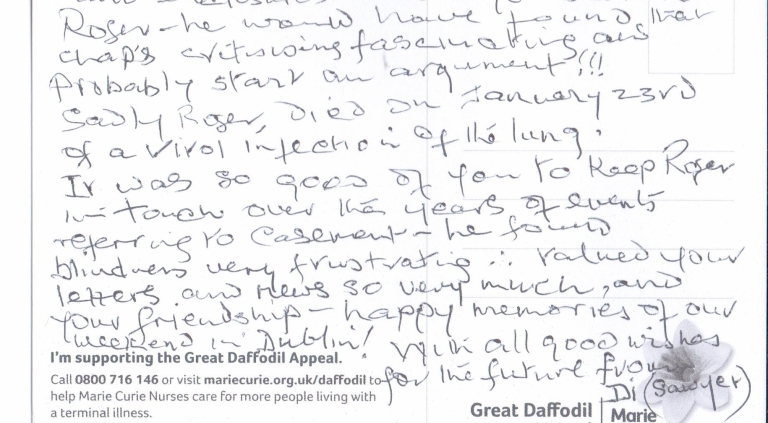 Roger – he would have found that
chap's critising fascinating and
Probably start an argument!!!
Sadly Roger, died on January 23rd
of a virol infection of the lung.
It was so good of you to keep Roger
in touch over the years of events
referring to Casement – he found
blindness very frustrating ∴ valued your
letters and news so very much, and
your friendship – happy memories of our
weekend in Dublin! With all good wishes
for the future from
Di (Sawyer)
I'm supporting the Great Daffodil Appeal.
Call 0800 716 146 or visit mariecurie.org.uk/daffodil to
help Marie Curie Nurses care for more people living with
a terminal illness.
Great Daffodil
Marie